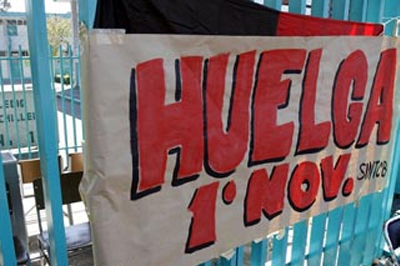 HUELGA
1° NOV.
SINTCB